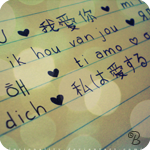 U ♥ 我愛你 ♥ mi
ik hou van jou ♥
해 ♥ ti amo ♥
dich ♥ 私は愛する